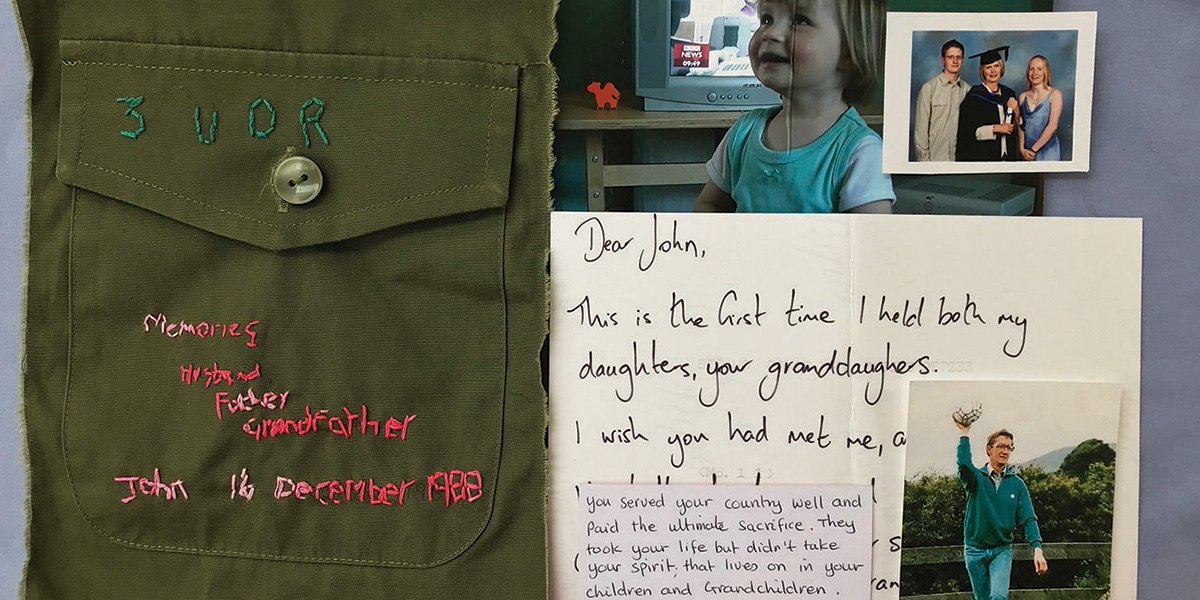 3 UDR
Memories
Husband
Father
Grandfather
John 16 December 1988
BBC
NEWS
09:49
Dear John,
This is the first time I held both my
daughters, your granddaughers.
I wish you had met me, a
you served your country well and
paid the ultimate sacrifice. They
took your life but didn't take
your spirit; that lives on in your
children and Grandchildren.